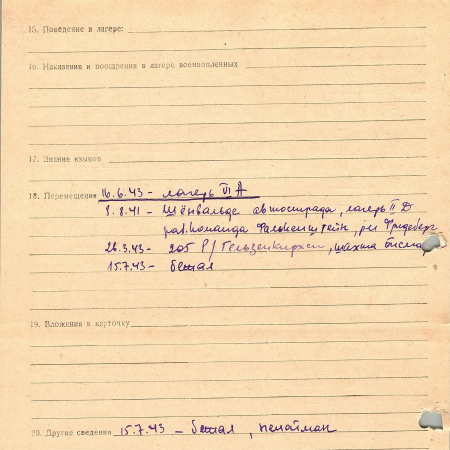 15. Поведение в лагере:
16. Наказания и поощрения в лагере военнопленных
17. Знание языков
18. Перемещения 16.6.43 - лагерь VI А
8.41 - Шёнвальде автострада, лагерь II D
раб. команда Фалькенштрейн, рн Фридеберг
26.3.43 - 205 Р/ Гельзенкирхен, шахта
15.7.43 - бежал
19. Вложения в карточку
20. Другие сведения 15.7.43 - бежал, непойман